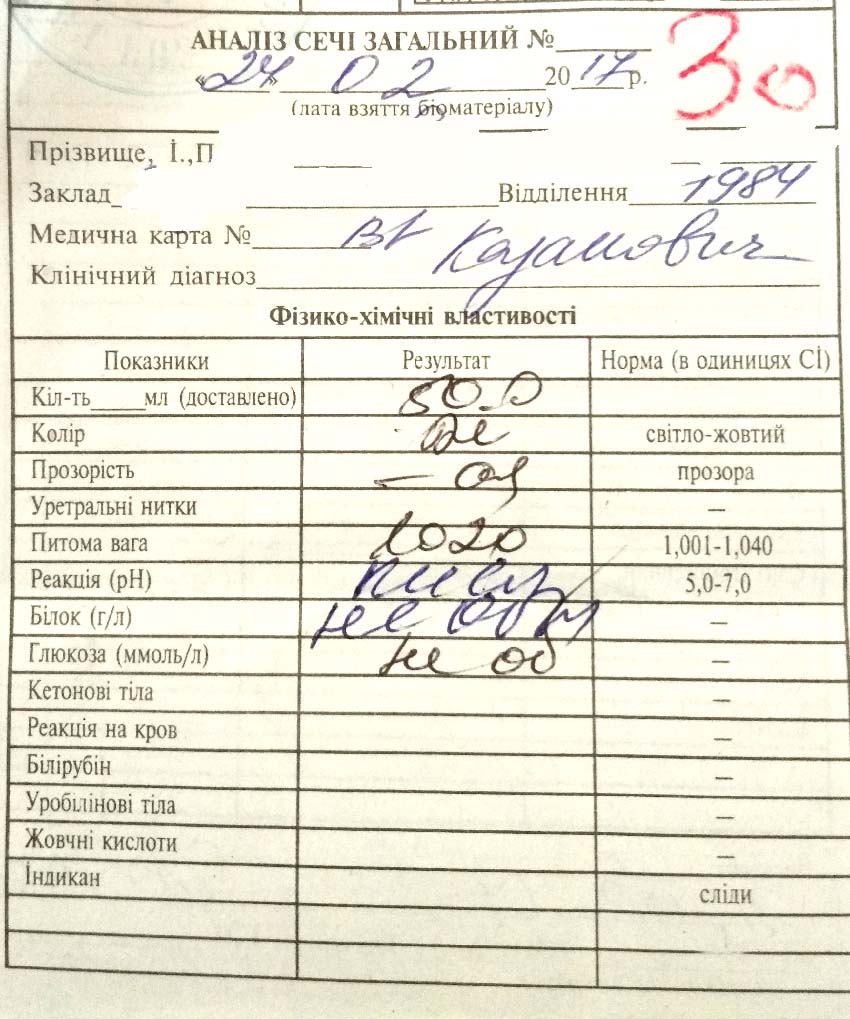 АНАЛІЗ СЕЧІ ЗАГАЛЬНИЙ №
30
«24» 02 2017 р.
(дата взяття біоматеріалу)
Прізвище, І.,П
Заклад Відділення 1984
Медична карта №
Клінічний діагноз
Фізико-хімічні властивості
Показники Результат Норма (в одиницях СІ)
Кіл-ть мл (доставлено) 50.0
Колір світло-жовтий
Прозорість прозора
Уретральні нитки –
Питома вага 1020 1,001-1,040
Реакція (рН) 5,0-7,0
Білок (г/л) не –
Глюкоза (ммоль/л) не об –
Кетонові тіла –
Реакція на кров –
Білірубін –
Уробілінові тіла –
Жовчні кислоти –
Індикан сліди